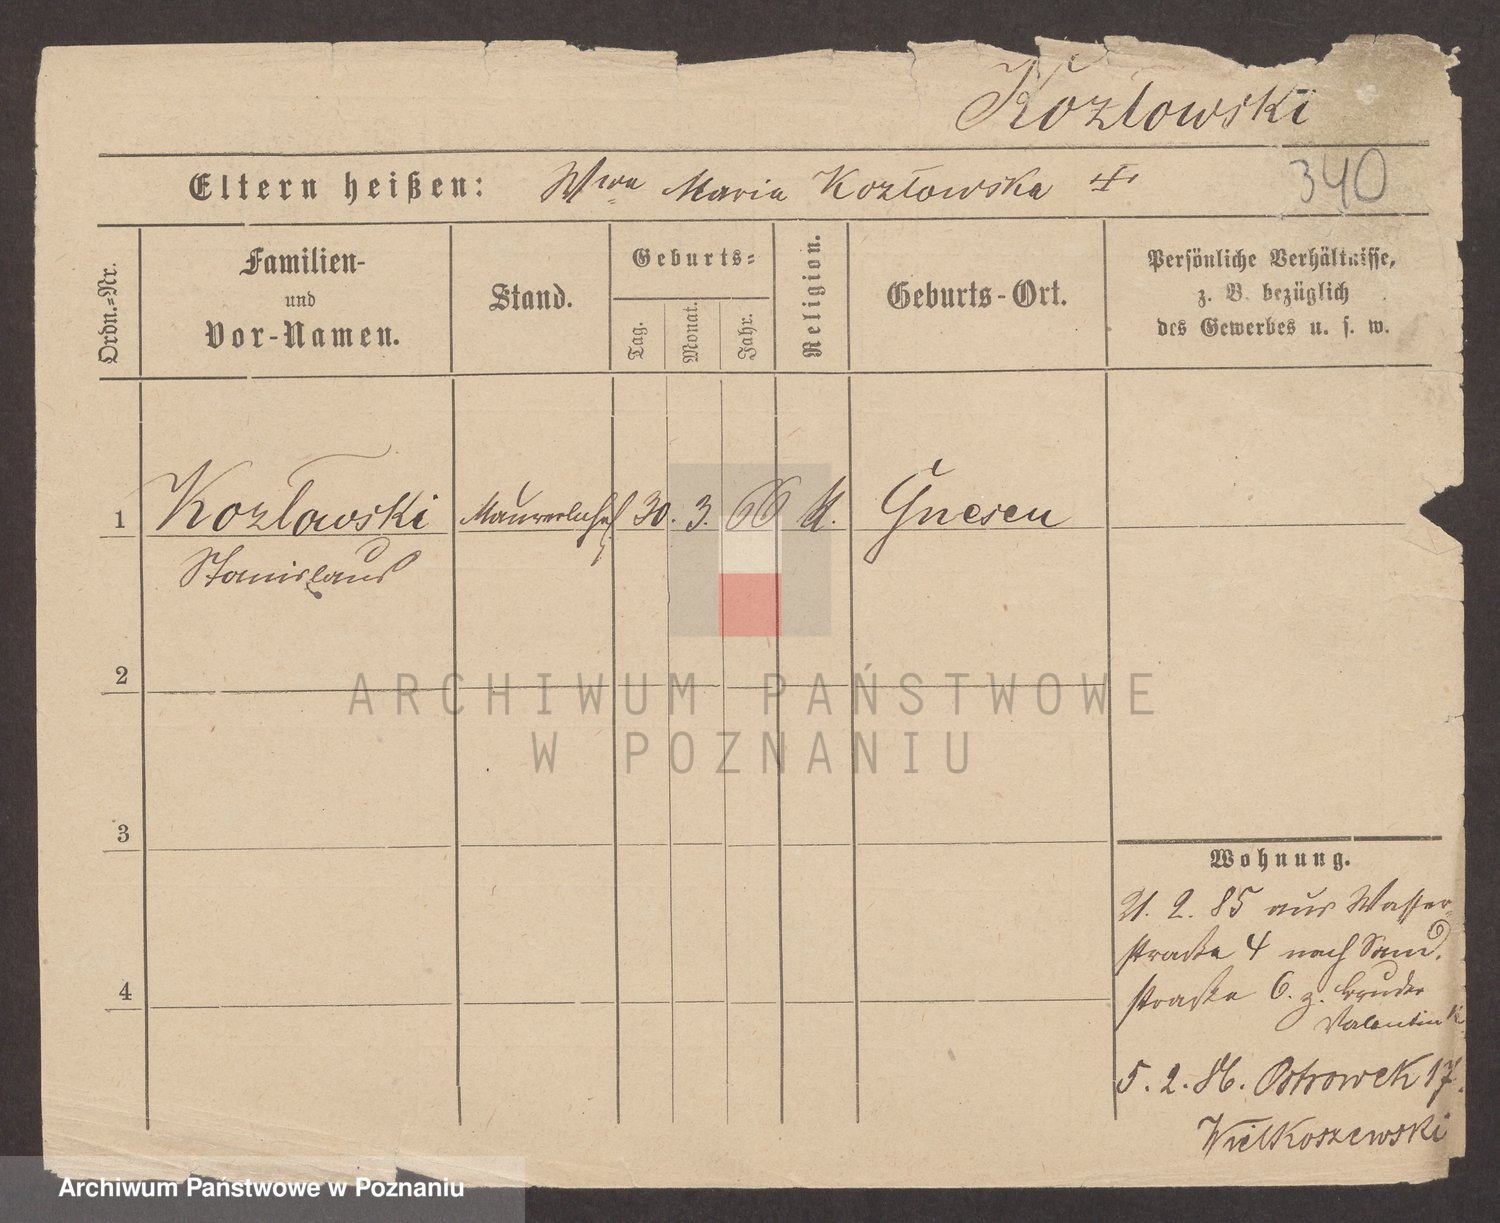 Kozłowski
Eltern heißen: Wwe Maria Kozłowska +
340
Ordn.=Nr.
Familien-
und
Vor-Namen.
Stand.
Geburts=
Tag.
Monat.
Jahr.
Religion.
Geburts-Ort.
Persönliche Verhältnisse,
z. B. bezüglich
des Gewerbes u. s. w.
1 Kozłowski Maurerlehrl 30. 3. 66 K. Gnesen
Stanislaus
2
ARCHIWUM PAŃSTWOWE
W POZNANIU
3
4
Wohnung.
21. 2. 85 aus Wasser-
straße 4 nach Sand.
straße 6. z. Bruder
Valentin K.
5. 2. 86. Ostrowek 17.
Wielkoszewski
Archiwum Państwowe w Poznaniu